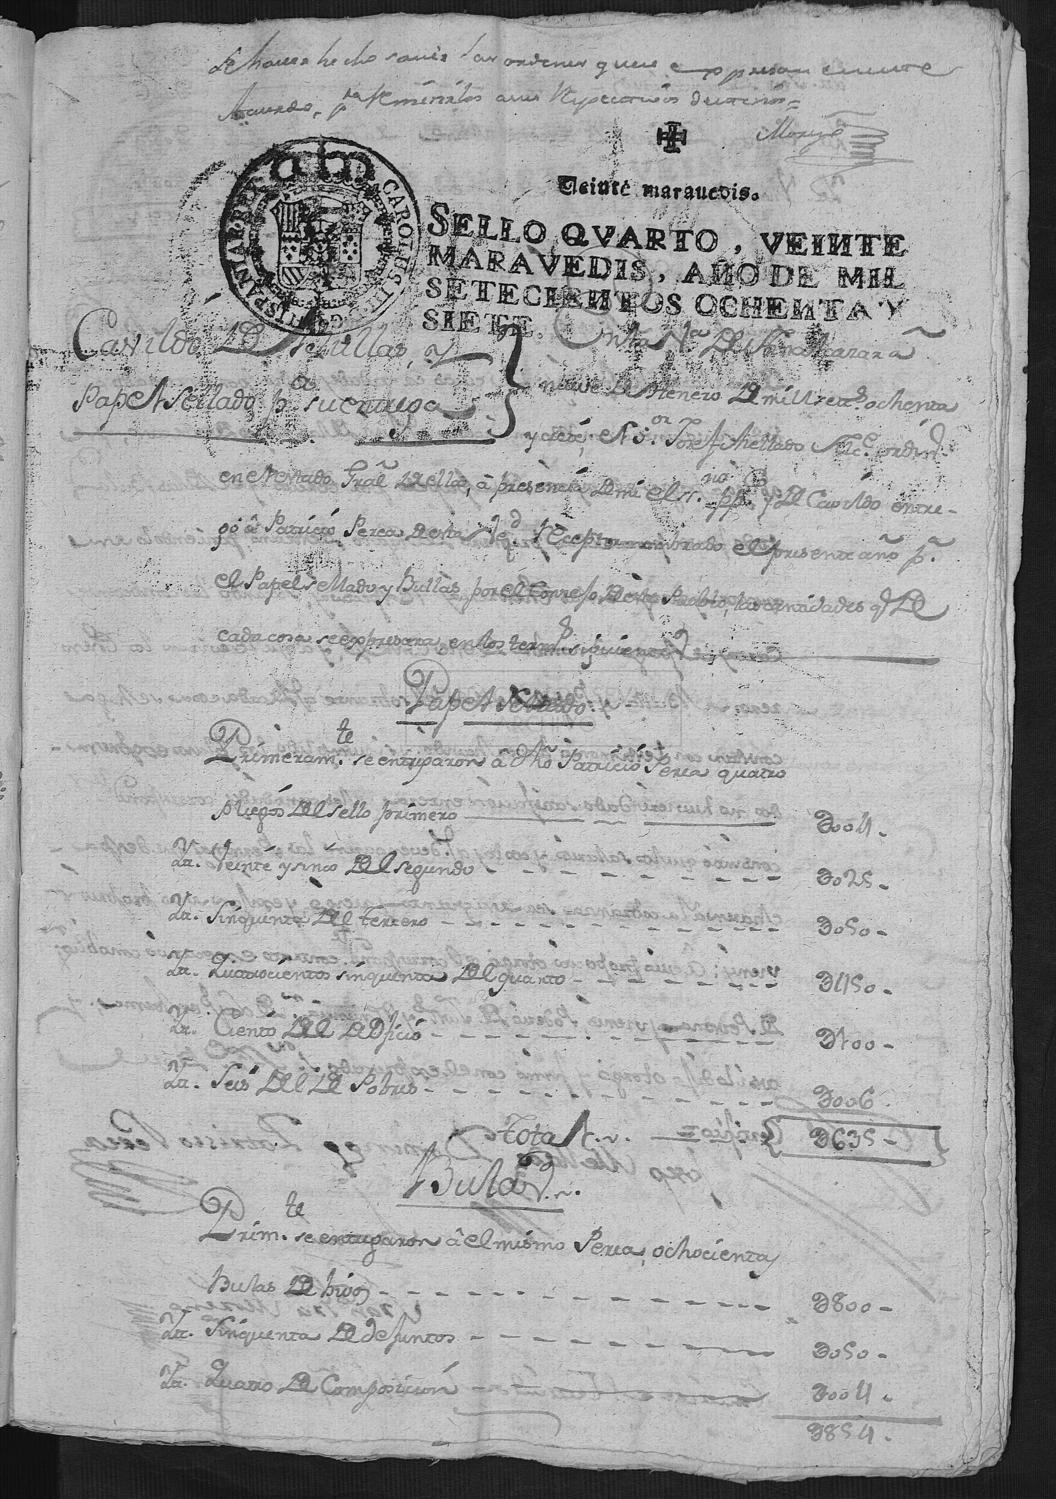 de haver hecho saver las ordenes que se expresan en este
Acuerdo, pa remitirlos a sus respectivos destinos=
Monge
Veinte marauedis.
SELLO QVARTO, VEINTE
MARAVEDIS, AÑO DE MIL
SETECIENTOS OCHENTA Y
SIETE.
CAROLUS III D G HISPANIAR REX
Cavildo De Bullas y
Papel sellado pa su entrega
En la Va De
nueve de Henero De mill setes ochenta
y siete, el Sor Josef Mellado Alce ordino
en el estado Gral De ella, à presencia De mi el ssno ppco y De Cavildo entre-
gó â Patricio Perea De esta Vezd Receptor nombrado el presente año pa
el Papel sellado y Bullas por el Conzejo De este Pueblo, las cantidades q De
cada cosa se expresara en los terms siguientes
Papel Sellado
Primeramte se entregaron â dho Patricio Perea quatro
pliegos Del sello primero 3004-
Yt. Veinte y sinco Del segundo 3025-
Yt. Sinquenta Del tercero 3050-
Yt. Quatrocientos sinquenta Del quarto 3450-
Yt. Ciento Del De Oficio 3100-
Yt. Seis Del De Pobres 3006
total 3635-
Bulas
Primte se entregaron â el mismo Perea, ochocientas
Bulas De bivos 3800-
Yt. Sinquenta De defuntos 3050-
Yt. Quatro De Composicion 3004-
3854.